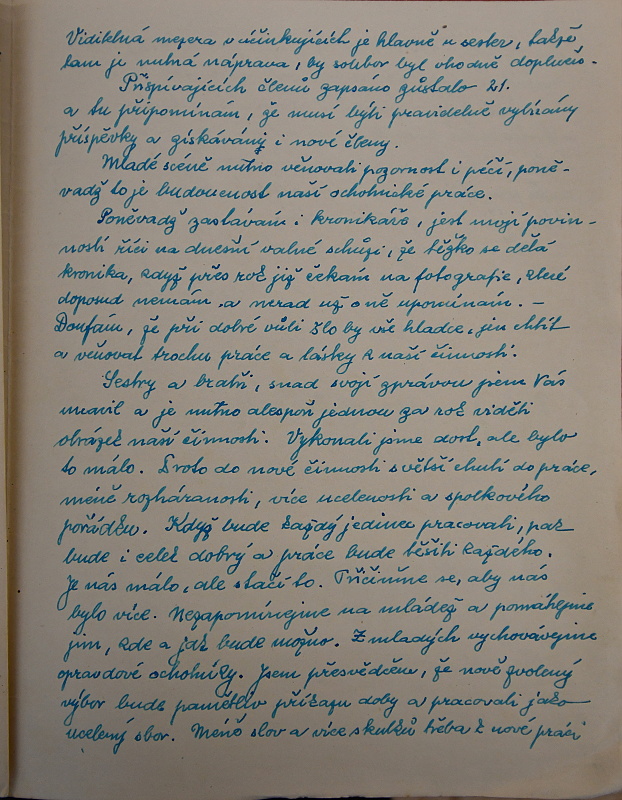 Viditelná mezera v účinkujících je hlavně u sester, takže
tam je nutná náprava, by soubor byl vhodně doplněn.
Přispívajících členů zapsáno zůstalo 21.
a tu připomínám, že musí býti pravidelně vybírány
příspěvky a získáváni i nové členy.
Mladé scéně nutno věnovati pozornost i péči, poně-
vadž to je budoucnost naší ochotnické práce.
Poněvadž zastávám i kronikáře, jest mojí povin-
ností říci na dnešní valné schůzi, že těžko se dělá
kronika, když přes rok již čekám na fotografie, které
doposud nemám a nerad už o ně upomínám. –
Doufám, že při dobré vůli šlo by vše hladce, jen chtít
a věnovat trochu práce a lásky k naší činnosti.
Sestry a bratři, snad svojí zprávou jsem Vás
unavil a je nutno alespoň jednou za rok viděti
obrázek naší činnosti. Vykonali jsme dost, ale bylo
to málo. Proto do nové činnosti s větší chutí do práce,
méně rozháranosti, více ucelenosti a spolkového
pořádku. Když bude každý jedinec pracovati, pak
bude i celek dobrý a práce bude těšiti každého.
Je nás málo, ale stačí to. Přičiníme se, aby nás
bylo více. Nezapomínejme na mládež a pomáhejme
jim, kde a jak bude možno. Z mladých vychovávejme
opravdové ochotníky. Jsem přesvědčen, že nově zvolený
výbor bude pamětliv příkazu doby a pracovati jako
ucelený sbor. Méně slov a více skutků třeba k nové práci